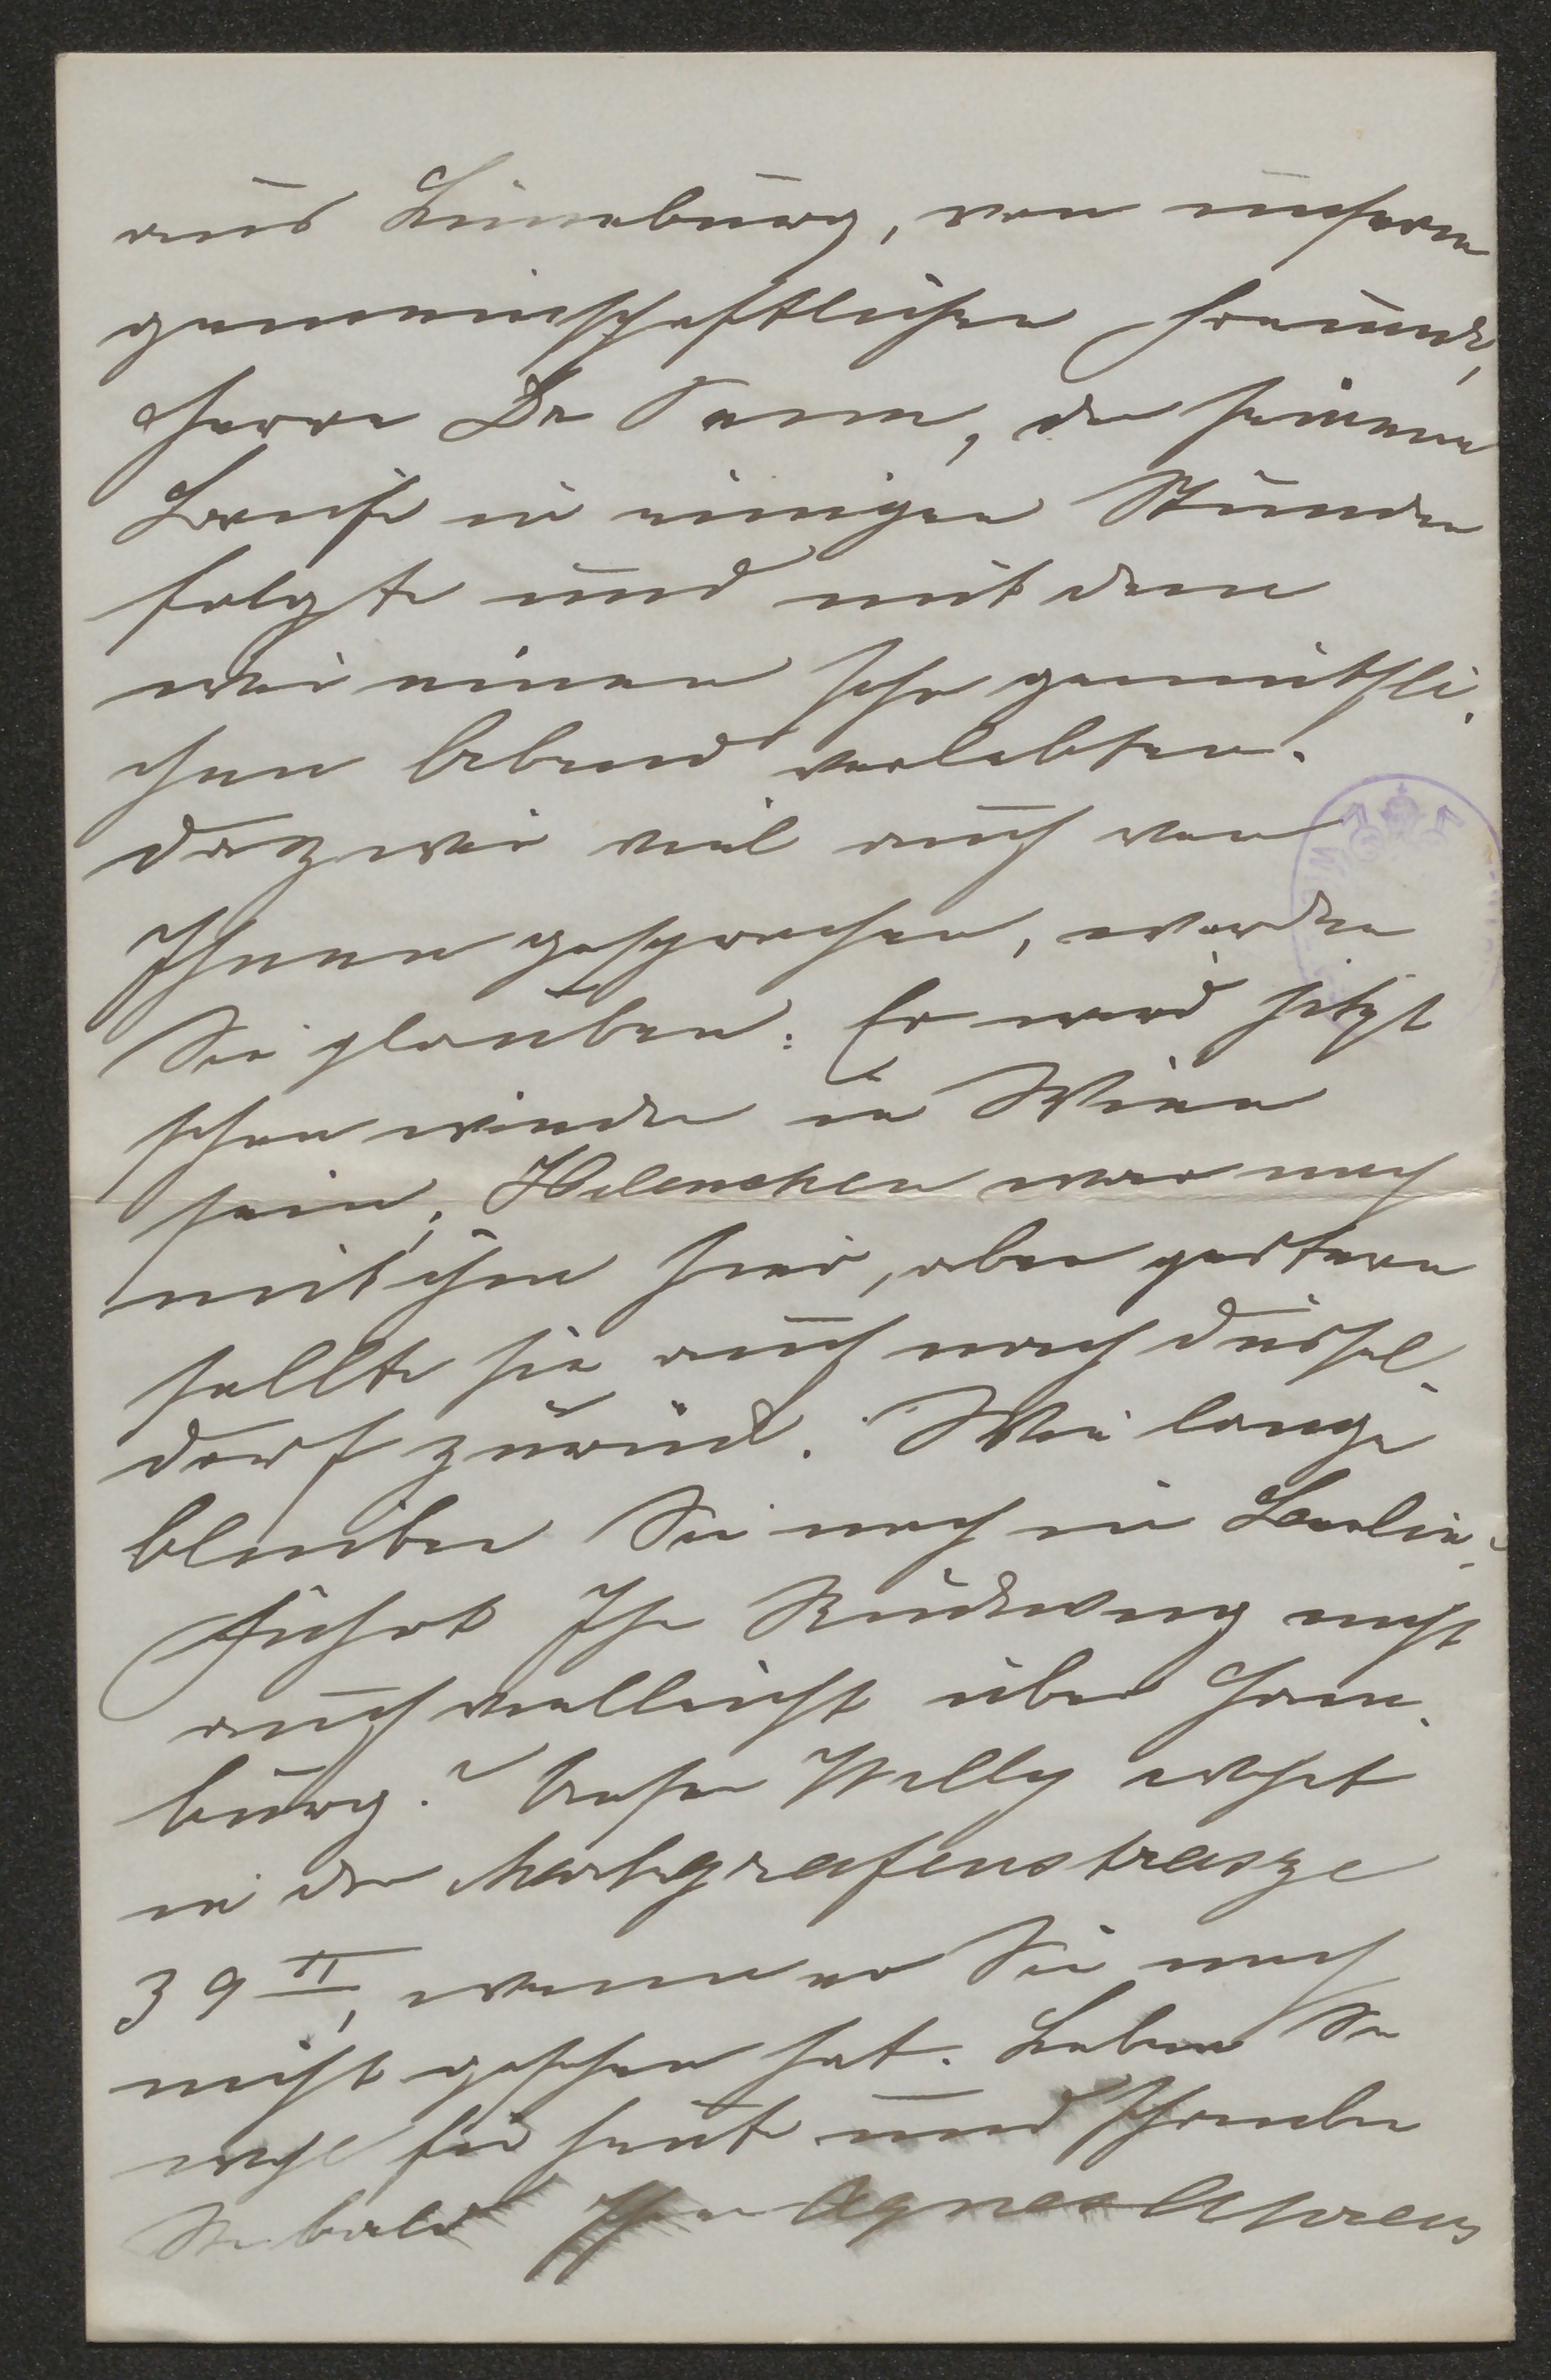 aus Lüneburg, von unserm
gemeinschaftlichen Freunde,
Herrn Dr Samm, der seinem
Briefe in einigen Stunden
folgte und mit dem
wir einen sehr gemüthli-
chen Abend verlebten.
Daß wir viel auch von
Ihnen gesprochen, werden
Sie glauben. Er wird jetzt
schon wieder in Wien
sein, Helenchen war noch
mit ihm hier, aber gestern
sollte sie auch nach Düssel-
dorf zurück. Wie lange
bleiben Sie noch in Berlin?
Führt Ihr Rückweg nicht
auch vielleicht über Ham-
burg? Unser Willy wohnt
in der Markgrafenstrasze
39 II, wenn er Sie noch
nicht gesehen hat. Leben Sie
wohl für heute und schreiben
Sie bald Ihrer Agnes Ahrens